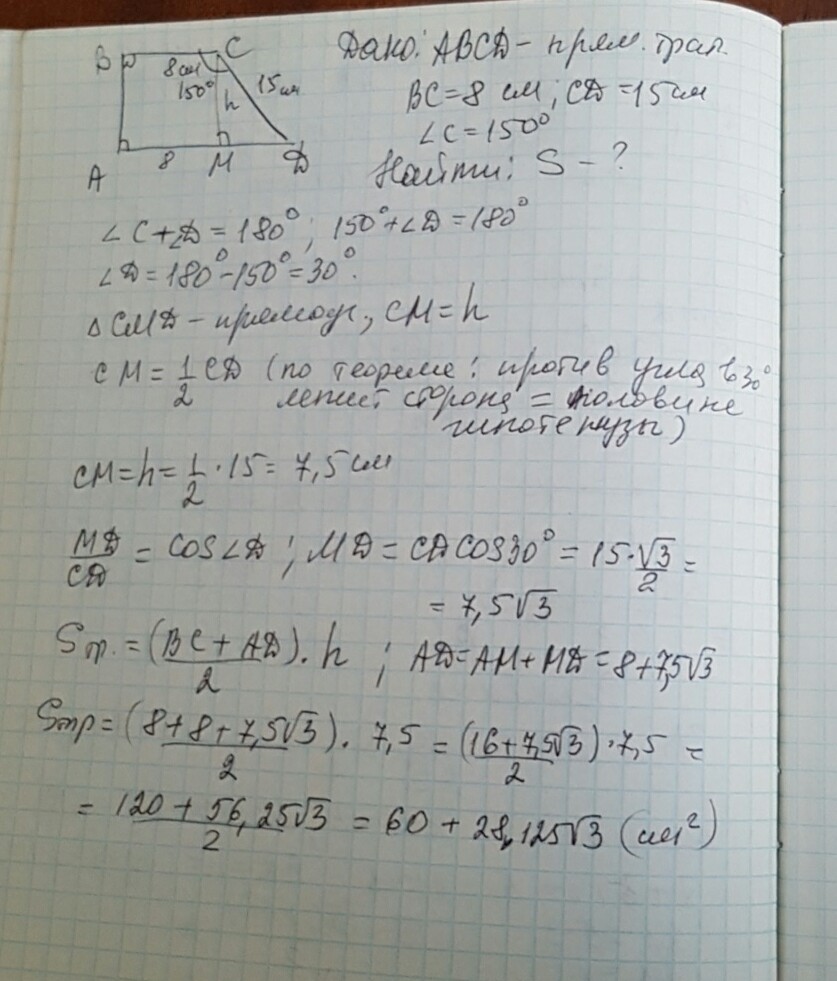 B C Дано: ABCD - прям. трап.
8 см 150° h 15 см
BC = 8 см ; CD = 15 см
∠C = 150°
A 8 M D Найти: S - ?
∠C + ∠D = 180° ; 150° + ∠D = 180°
∠D = 180° - 150° = 30°.
△ CMD - прямоуг., CM = h
CM = 1/2 CD (по теореме: против угла в 30°
лежит сторона = половине
гипотенузы)
CM = h = 1/2 · 15 = 7,5 см
MD/CD = cos∠D ; MD = CD cos30° = 15 · √3/2 =
= 7,5√3
Sтр. = (BC + AD)/2 · h ; AD = AM + MD = 8 + 7,5√3
Sтр = (8 + 8 + 7,5√3)/2 · 7,5 = (16 + 7,5√3)/2 · 7,5 =
= (120 + 56,25√3)/2 = 60 + 28,125√3 (см²)